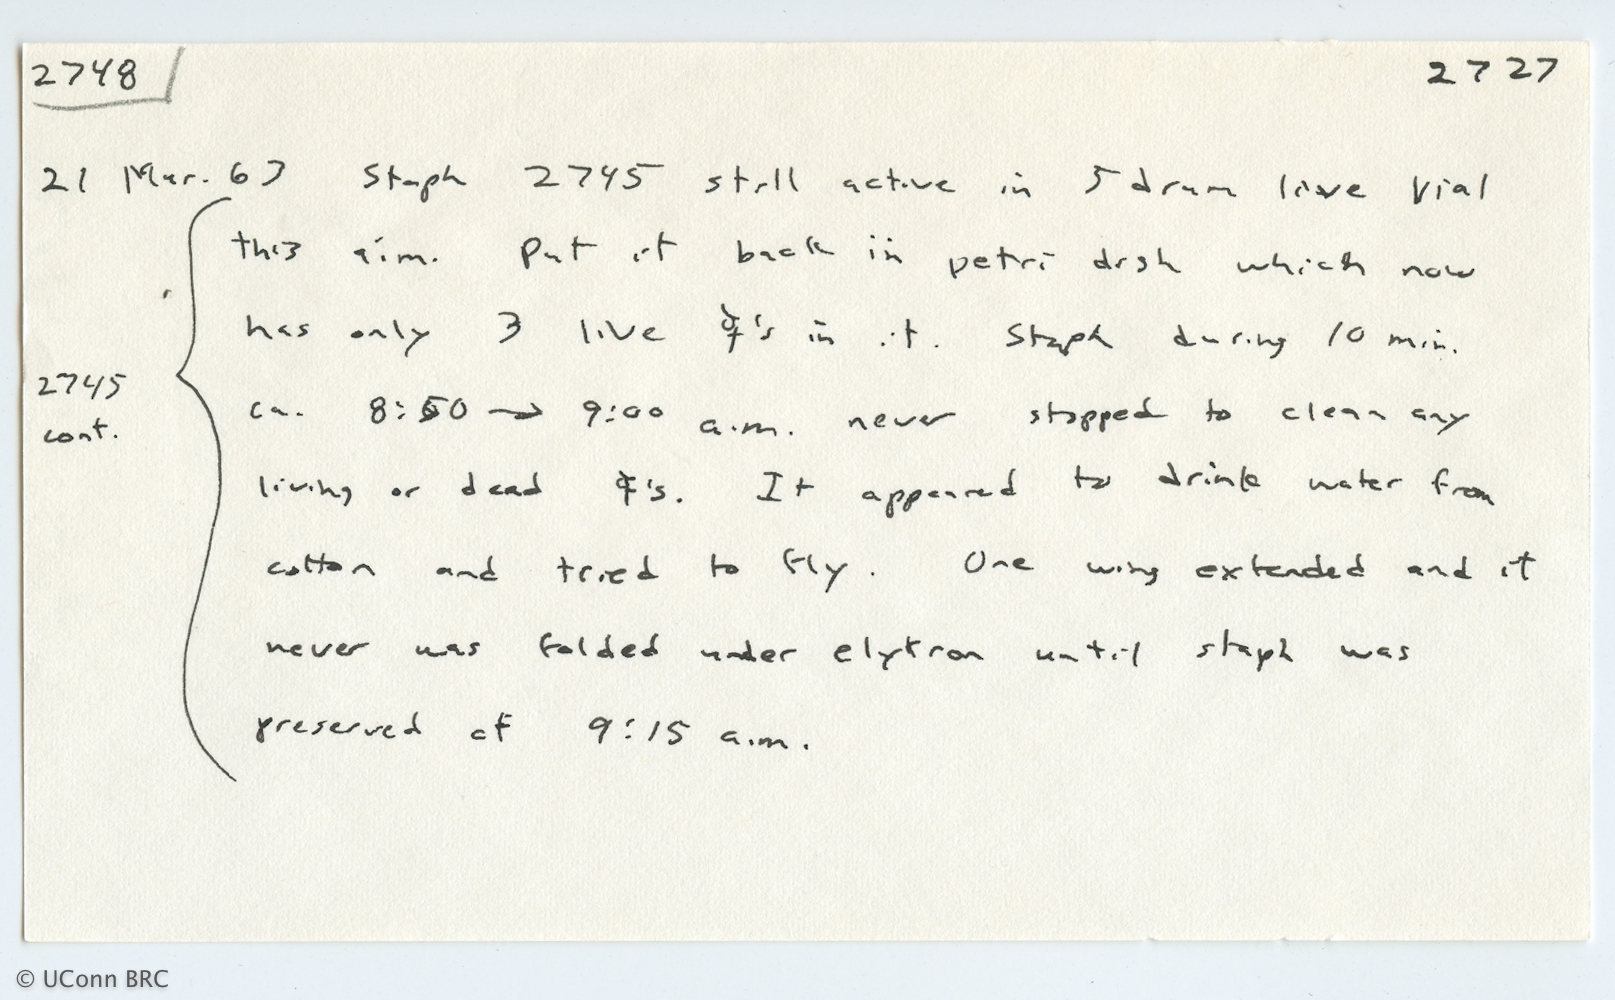 2748 2727
21 Mar. 67 Staph 2745 still active in 5 dram live vial
this a.m. Put it back in petri dish which now
has only 3 live ☿'s in it. Staph during 10 min.
ca. 8:50 → 9:00 a.m. never stopped to clean any
2745
cont.
living or dead ☿'s. It appeared to drink water from
cotton and tried to fly. One wing extended and it
never was folded under elytron until staph was
preserved at 9:15 a.m.
© UConn BRC